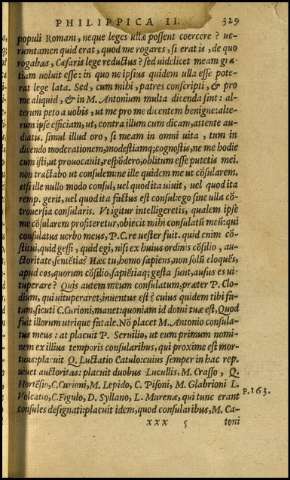 PHILIPPICA II. 329
populi Romani, neque leges ullæ possent coercere? ue-
rumtamen quid erat, quod me rogares, si erat is, de quo
rogabas, Cæsaris lege reductus? sed uidelicet meam gra
tiam uoluit esse: in quo ne ipsius quidem ulla esse pote-
rat lege lata. Sed, cum mihi, patres conscripti, & pro
me aliquid, & in M. Antonium multa dicenda sint: al-
terum peto a uobis, ut me pro me dicentem benigne: alte-
rum ipse efficiam, ut, contra illum cum dicam, attente au-
diatis. simul illud oro, si meam in omni uita, tum in
dicendo moderationem, modestiamq; cognostis, ne me hodie
cum isti, ut prouocauit, respōdero, oblitum esse putetis mei.
non tractabo ut consulem: ne ille quidem me ut cōsularem.
etsi ille nullo modo consul, uel quod ita uiuit, uel quod ita
remp. gerit, uel quod ita factus est: ego sine ulla cō-
trouersia consularis. Vt igitur intelligeretis, qualem ipse
se cōsulem profiteretur, obiecit mihi consulatū meū: qui
consulatus uerbo meus, P. C. re uester fuit. quid enim cō-
stitui, quid gessi, quid egi, nisi ex huius ordinis cōsilio, au-
ctoritate, sententia? Hæc tu, homo sapiens, non solū eloquēs,
apud eos, quorum cōsilio, sapiētiaq; gesta sunt, ausus es ui-
tuperare? Quis autem meum consulatum, præter P. Clo-
dium, qui uituperaret, inuentus est? cuius quidem tibi fa-
tum, sicuti C. Curioni, manet: quoniam id domi tuæ est, Quod
fuit illorum utrique fatale. Nō placet M. Antonio consula-
tus meus: at placuit P. Seruilio, ut eum primum nomi-
nem ex illius temporis consularibus, qui proxime est mor-
tuus: placuit Q. Luctatio Catulo: cuius semper in hac rep.
uiuet auctoritas: placuit duobus Lucullis. M. Crasso, Q.
Hortēsio, C. Curioni, M. Lepido, C. Pisoni, M. Glabrioni L.
Volcatio, C. Figulo, D. Syllano, L. Murenæ, qui tunc erant
P. 163.
consules designati: placuit idem, quod consularibus, M. Ca-
xxx 5 toni